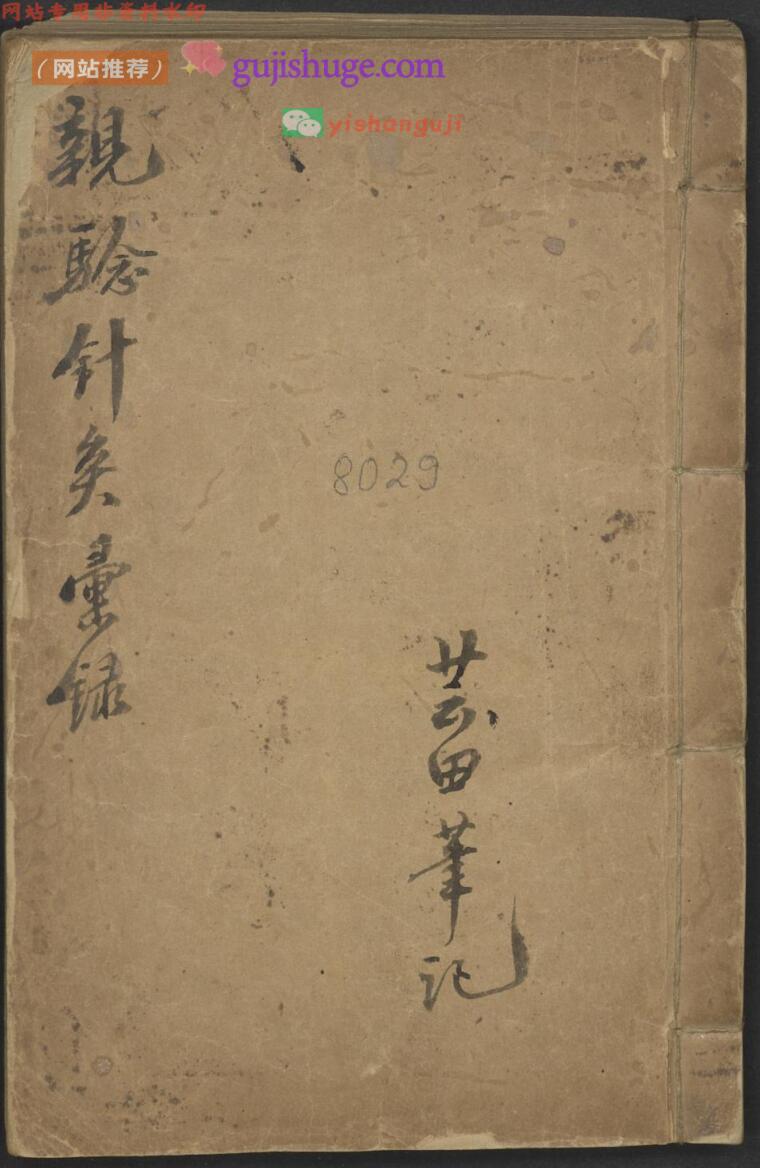 网站专用步资料水印
（网站推荐）
gujishuge.com
yishanguji
親驗針灸彙録
8029
芸田筆記